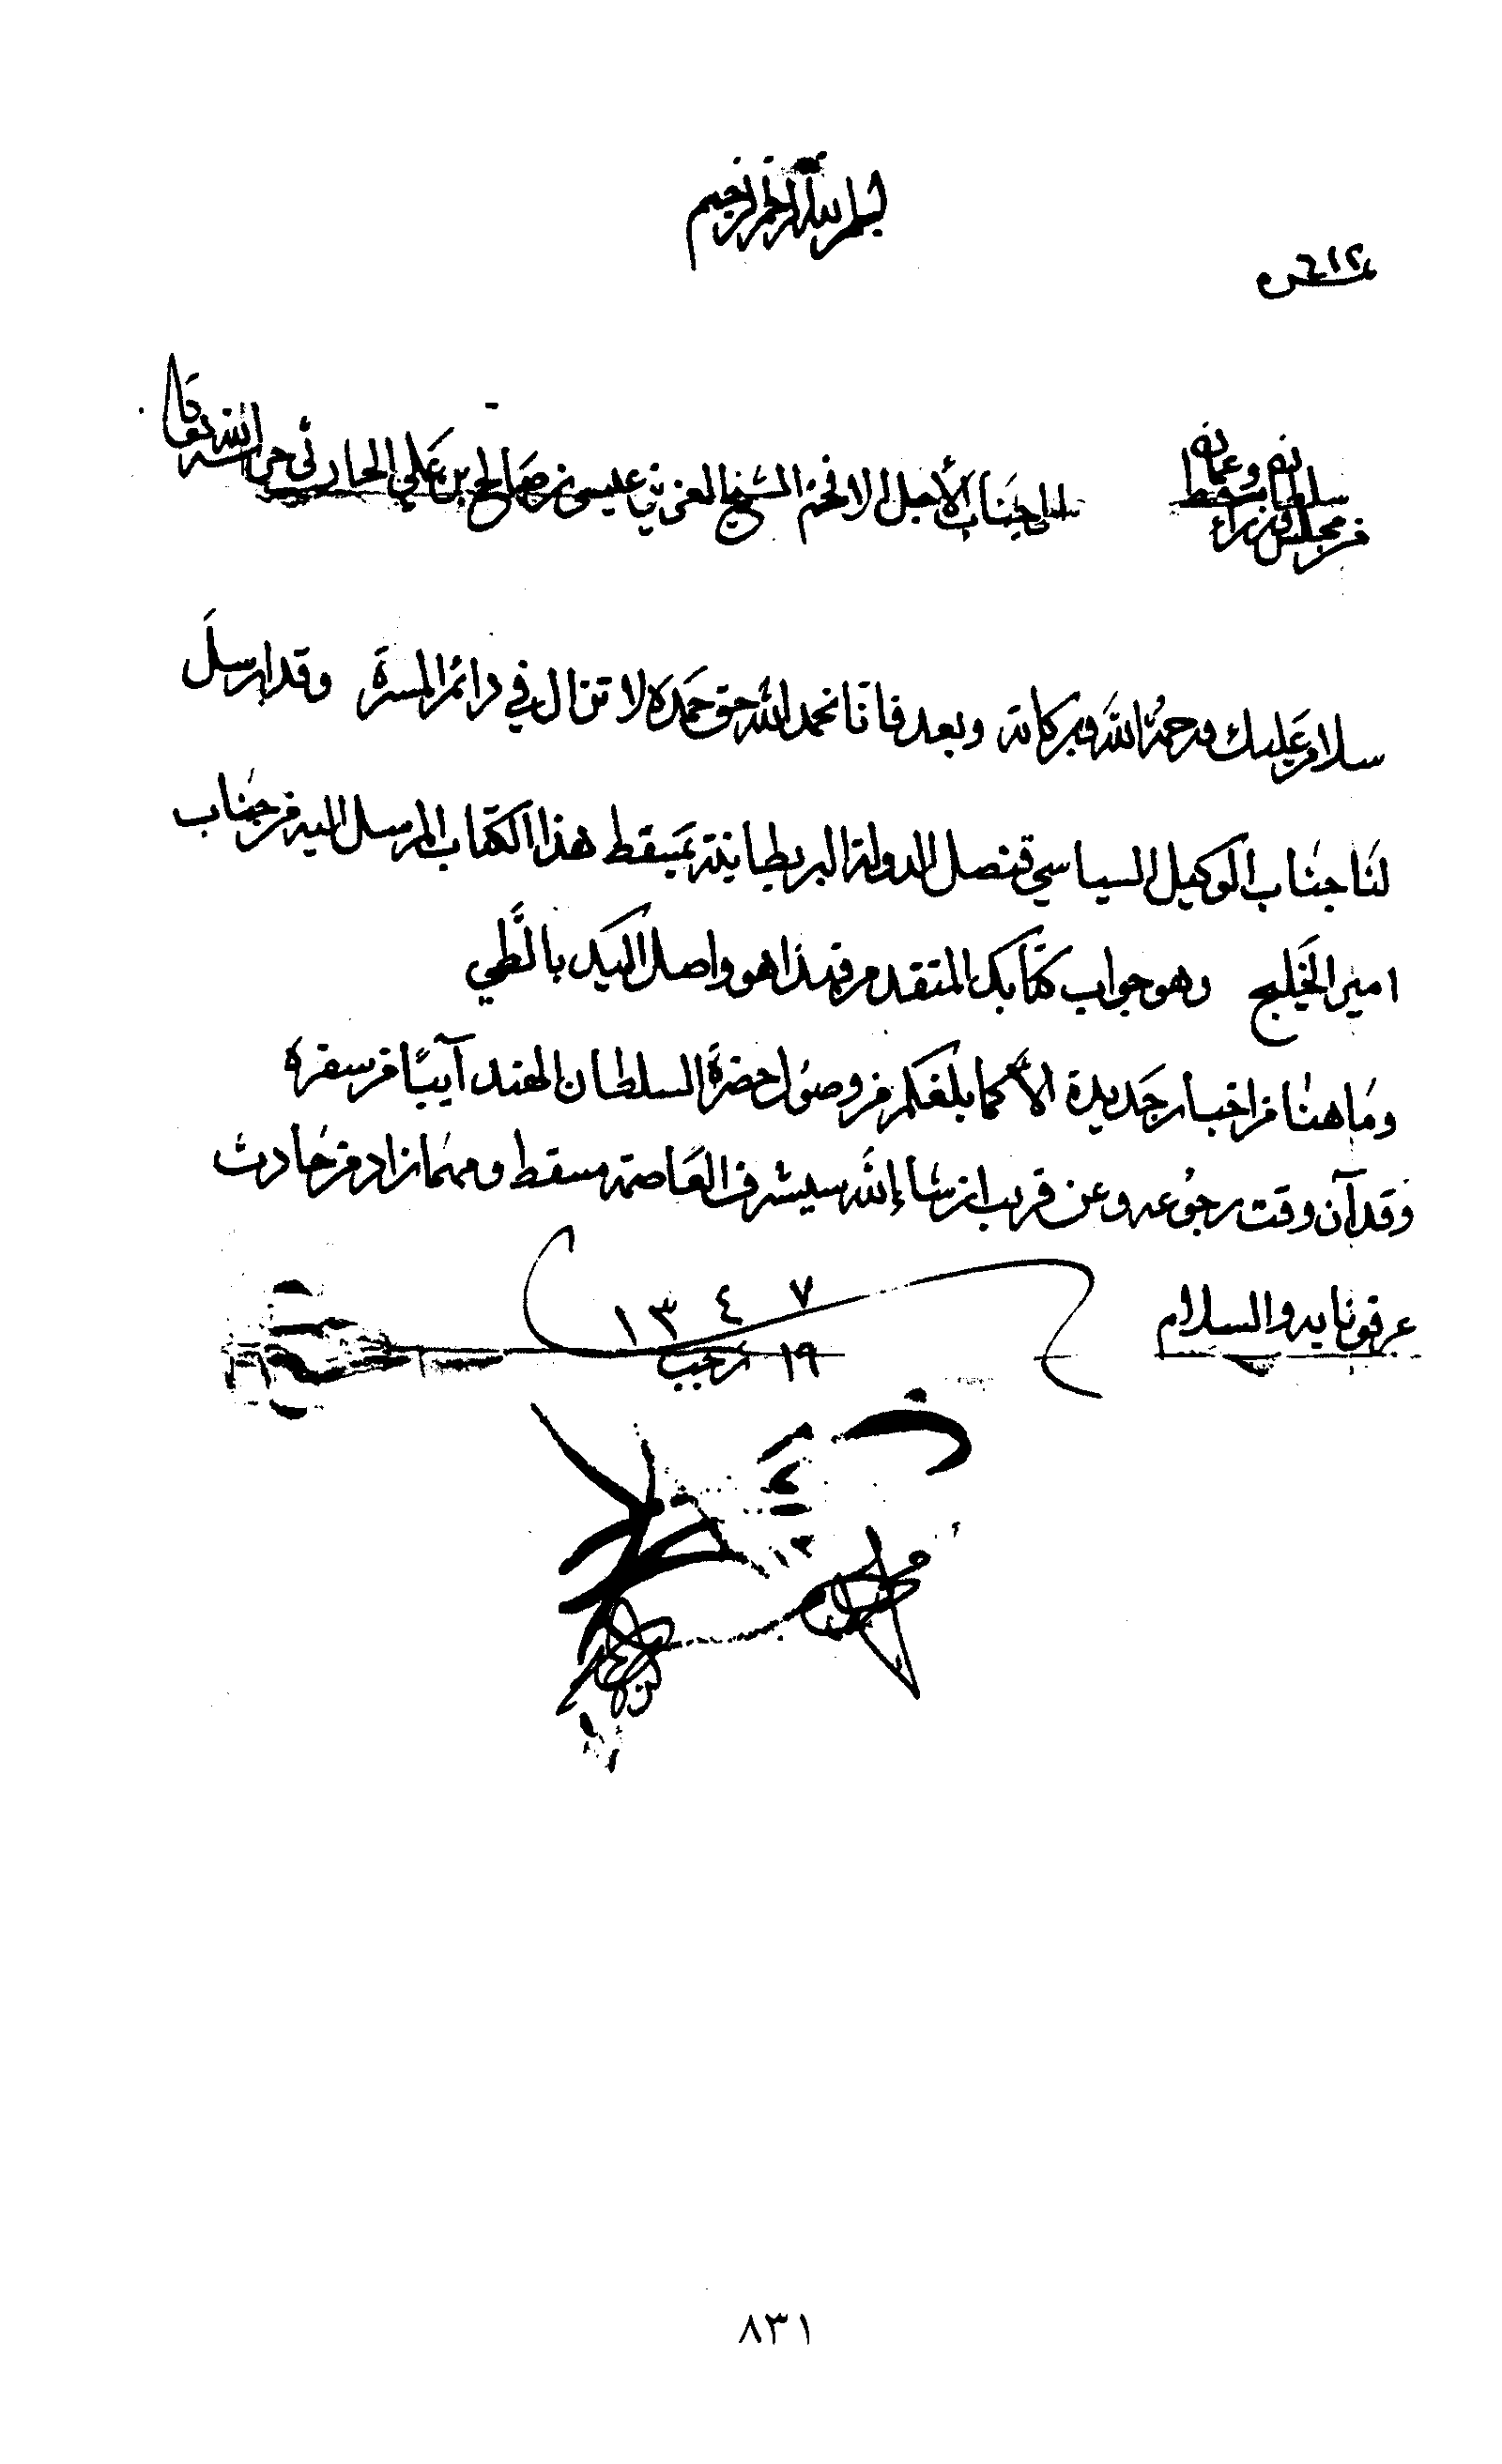 بسم الله الرحمن الرحيم
سلطانة مسقط وعمان
من مجلس وزراء
إلى جناب الأجل الافخم الشيخ العزيز عيسى بن صالح بن علي الحارثي حرسه الله تعالى
سلام عليك ورحمة الله وبركاته وبعد فاننا نحمد الله حق حمده لا تزال في دائم المسرة وقد ارسل
لنا جناب الوكيل السياسي قنصل الدولة البريطانية بمسقط هذا الكتاب المرسل اليه من جناب
امير الخليج وهو جواب كتابك المتقدم فهذا هو واصل اليك بالطي
وما هنا من اخبار جديدة الا كما بلغكم من وصول حضرة السلطان الهند آيبًا من سفره
وقد آن وقت رجوعه وعن قريب ان شاء الله سيشرف العاصمة مسقط ومهما زاد من حادث
عرفونا به والسلام
١٣٤٧
١٩ رجب
٨٣١